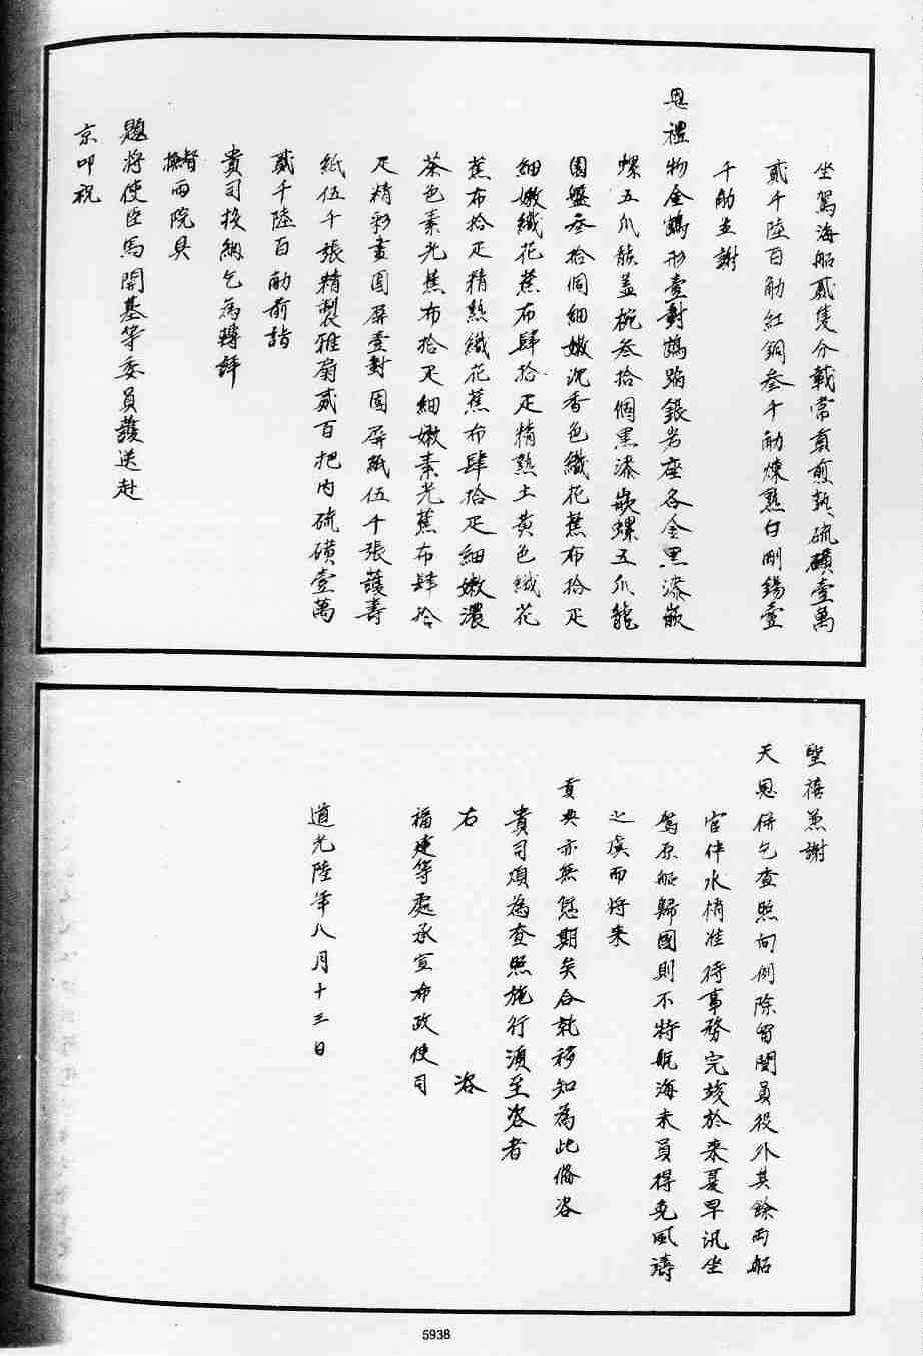 坐駕海船貳隻分載常貢煎熟硫磺壹萬
貳千陸百觔紅銅叁千觔煉熟白剛錫壹
千觔並謝
恩禮物金鶴形壹對鶴踏銀岩座各全黑漆嵌
螺五爪龍蓋椀叁拾個黑漆嵌螺五爪龍
圓盤叁拾個細嫩沉香色織花蕉布拾疋
細嫩織花蕉布肆拾疋精熟土黃色織花
蕉布拾疋精熟織花蕉布肆拾疋細嫩濃
茶色素光蕉布拾疋細嫩素光蕉布肆拾
疋精彩畫圍屏壹對圍屏紙伍千張護壽
紙伍千張精製雅扇貳百把內硫磺壹萬
貳千陸百觔前詣
貴司投納乞為轉詳
督撫兩院具
題將使臣馬開基等委員護送赴
京叩祝
聖禧並謝
天恩併乞查照向例除留閩員役外其餘兩船
官伴水梢准待事務完竣於來夏早汛坐
駕原船歸國則不特航海末員得免風濤
之虞而將來
貢典亦無愆期矣合就移知為此俻咨
貴司煩為查照施行須至咨者
右 咨
福建等處承宣布政使司
道光陸年八月十三日
5938